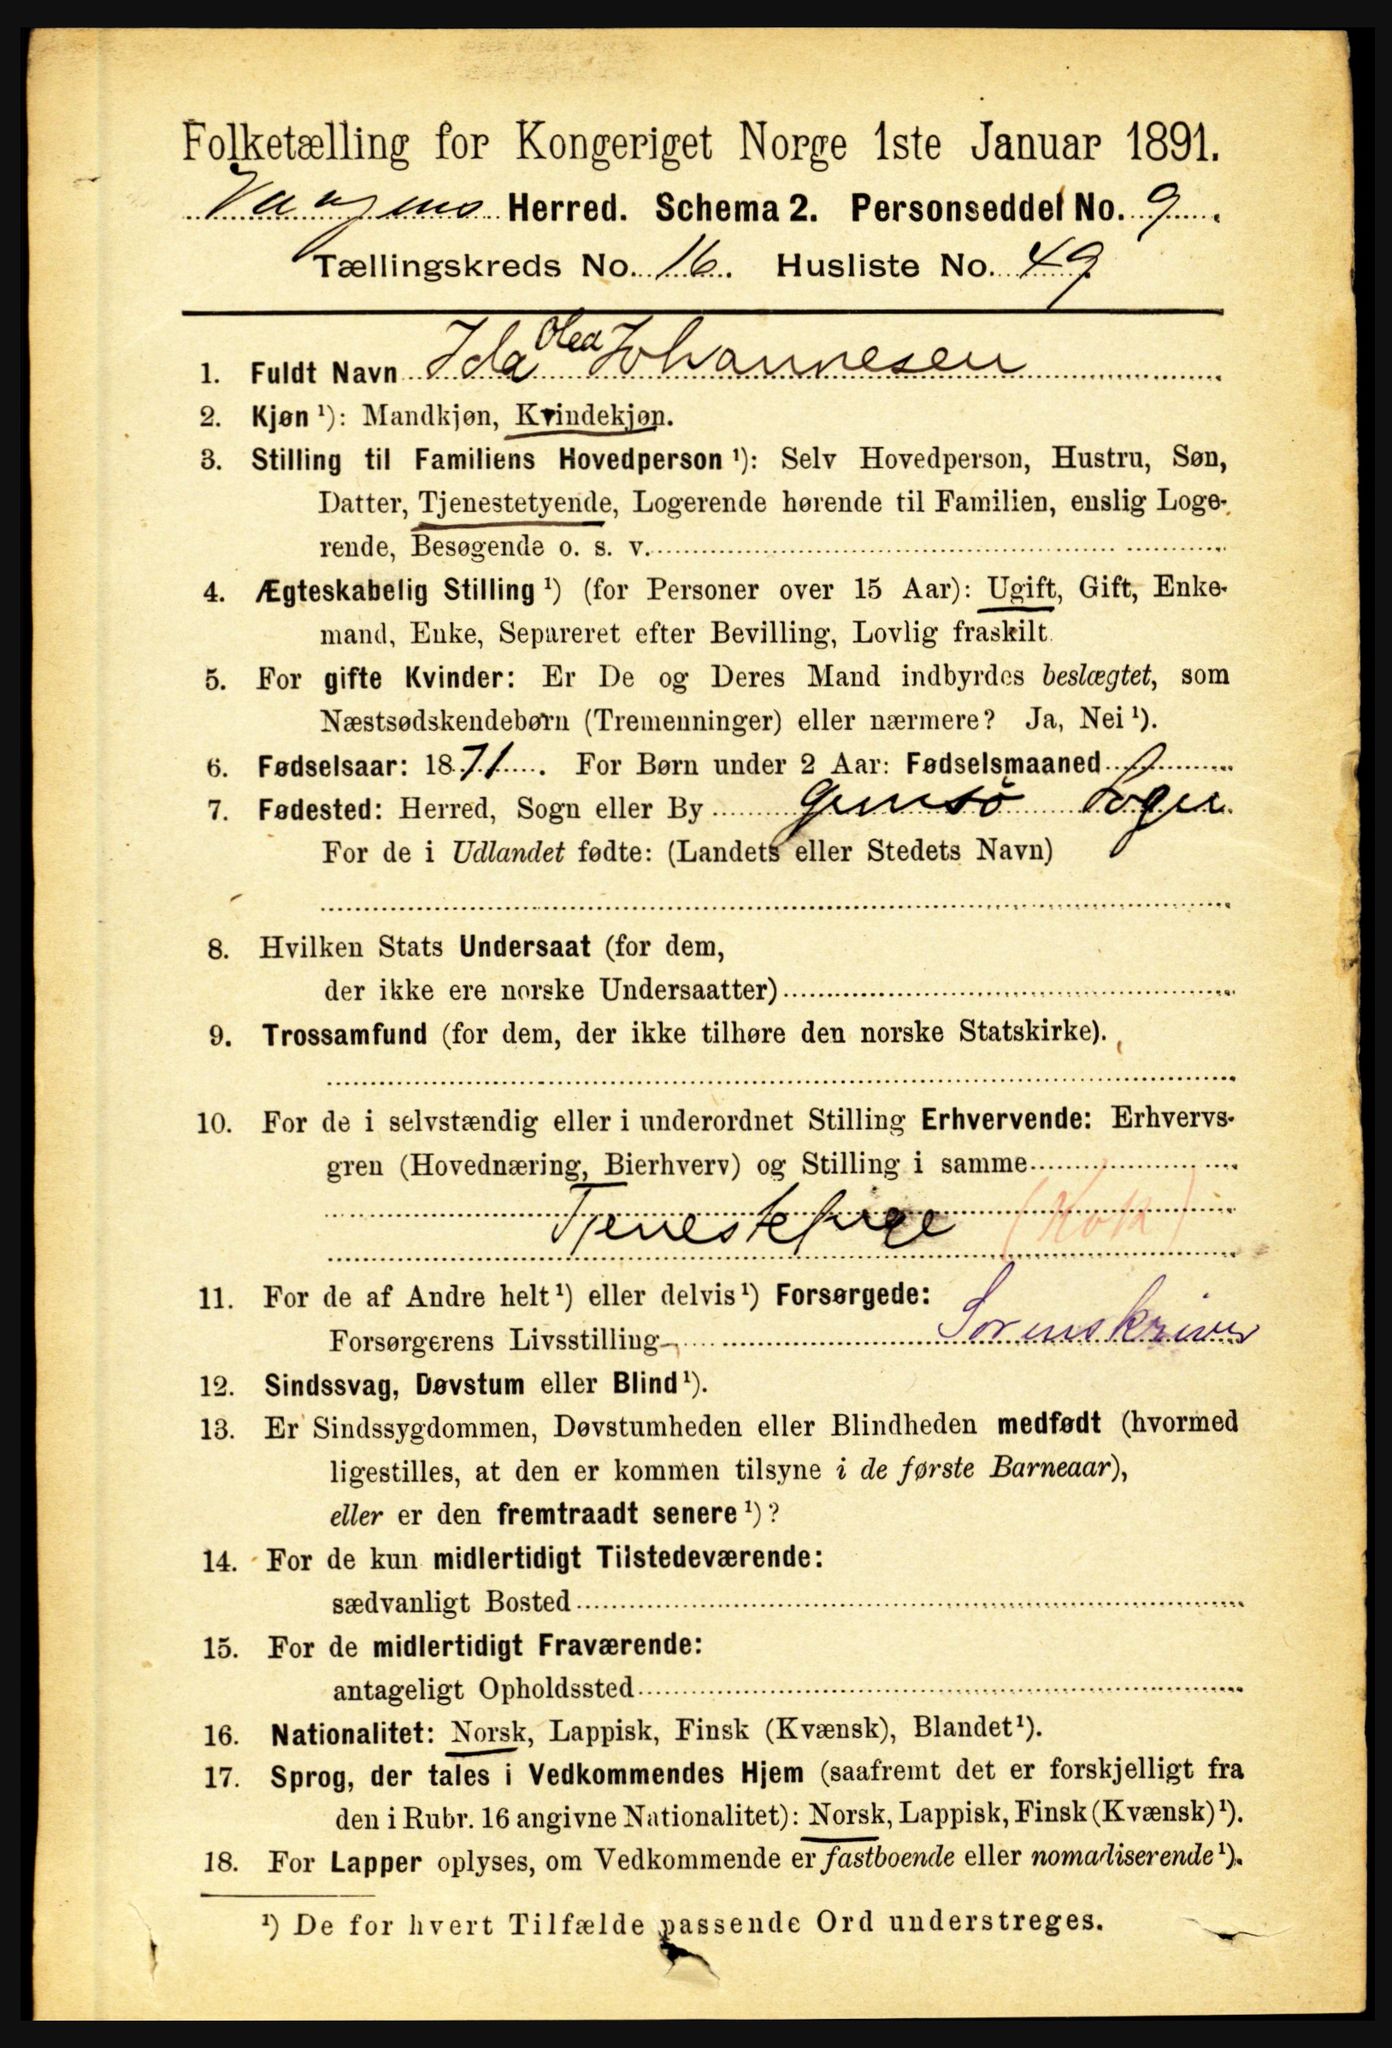 Folketælling for Kongeriget Norge 1ste Januar 1891.
Vaagens Herred. Schema 2. Personseddel No. 9.
Tællingskreds No. 16. Husliste No. 49
1. Fuldt Navn Ida Olea Johannesen
2. Kjøn ¹): Mandkjøn, Kvindekjøn.
3. Stilling til Familiens Hovedperson ¹): Selv Hovedperson, Hustru, Søn,
Datter, Tjenestetyende, Logerende hørende til Familien, enslig Loge-
rende, Besøgende o. s. v.
4. Ægteskabelig Stilling ¹) (for Personer over 15 Aar): Ugift, Gift, Enke-
mand, Enke, Separeret efter Bevilling, Lovlig fraskilt.
5. For gifte Kvinder: Er De og Deres Mand indbyrdes beslægtet, som
Næstsødskendebørn (Tremenninger) eller nærmere? Ja, Nei ¹).
6. Fødselsaar: 1871. For Børn under 2 Aar: Fødselsmaaned
7. Fødested: Herred, Sogn eller By Gimsø Sogn
For de i Udlandet fødte: (Landets eller Stedets Navn)
8. Hvilken Stats Undersaat (for dem,
der ikke ere norske Undersaatter)
9. Trossamfund (for dem, der ikke tilhøre den norske Statskirke).
10. For de i selvstændig eller i underordnet Stilling Erhvervende: Erhvervs-
gren (Hovednæring, Bierhverv) og Stilling i samme
Tjenestepige (Kok)
11. For de af Andre helt ¹) eller delvis ¹) Forsørgede:
Forsørgerens Livsstilling Sorenskriver
12. Sindssvag, Døvstum eller Blind ¹).
13. Er Sindssygdommen, Døvstumheden eller Blindheden medfødt (hvormed
ligestilles, at den er kommen tilsyne i de første Barneaar),
eller er den fremtraadt senere ¹)?
14. For de kun midlertidigt Tilstedeværende:
sædvanligt Bosted
15. For de midlertidigt Fraværende:
antageligt Opholdssted
16. Nationalitet: Norsk, Lappisk, Finsk (Kvænsk), Blandet ¹).
17. Sprog, der tales i Vedkommendes Hjem (saafremt det er forskjelligt fra
den i Rubr. 16 angivne Nationalitet): Norsk, Lappisk, Finsk (Kvænsk) ¹).
18. For Lapper oplyses, om Vedkommende er fastboende eller nomadiserende ¹).
¹) De for hvert Tilfælde passende Ord understreges.